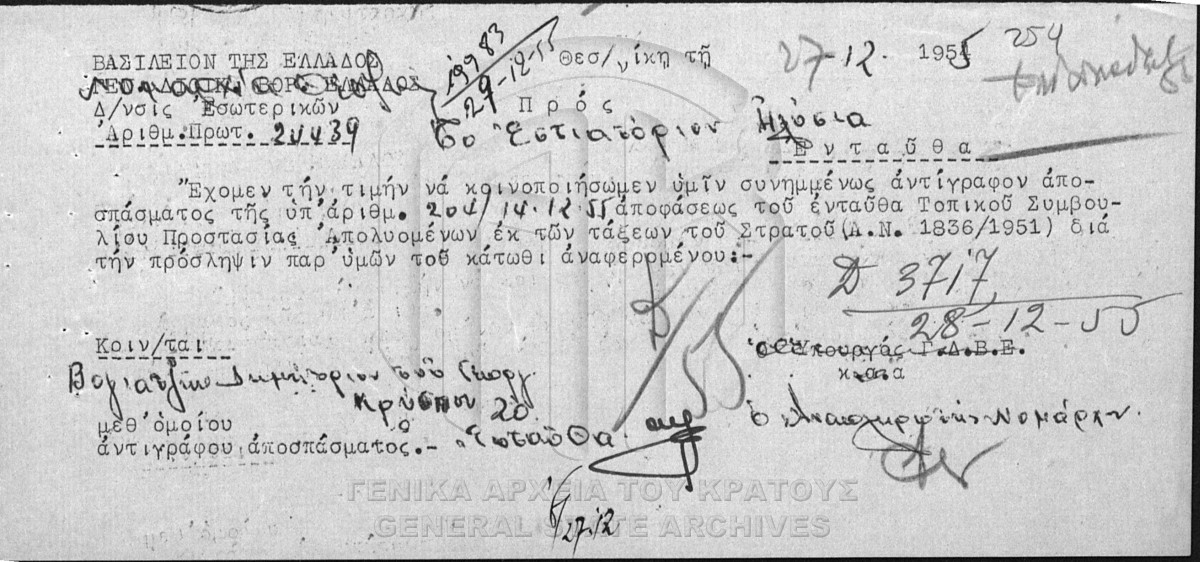 ΒΑΣΙΛΕΙΟΝ ΤΗΣ ΕΛΛΑΔΟΣ
Δ/νσις Ἐσωτερικῶν
Ἀριθμ.Πρωτ. 20439
19983
29-12-55
Θεσ/νίκη τῇ 27-12. 1955
254
Πρός
Τὸ Ἑστιατόριον Ἠλύσια
Ἐνταῦθα
Ἔχομεν τήν τιμήν νά κοινοποιήσωμεν ὑμῖν συνημμένως ἀντίγραφον ἀπο-
σπάσματος τῆς ὑπ'ἀριθμ. 204/14.12.55 ἀποφάσεως τοῦ ἐνταῦθα Τοπικοῦ Συμβου-
λίου Προστασίας Ἀπολυομένων ἐκ τῶν τάξεων τοῦ Στρατοῦ(Α.Ν. 1836/1951) διά
τήν πρόσληψιν παρ'ὑμῶν τοῦ κάτωθι ἀναφερομένου:-
Δ 3717
28-12-55
Κοιν/ται
Ὁ Ὑπουργός Γ.Δ.Β.Ε.
κ.α.α
Δημήτριον τοῦ Γεωργ.
Κρίσπου 20
Ὁ Νομάρχης.
μεθ'ὁμοίου
ἀντιγράφου ἀποσπάσματος.- Ἐνταῦθα
27.12
ΓΕΝΙΚΑ ΑΡΧΕΙΑ ΤΟΥ ΚΡΑΤΟΥΣ
GENERAL STATE ARCHIVES